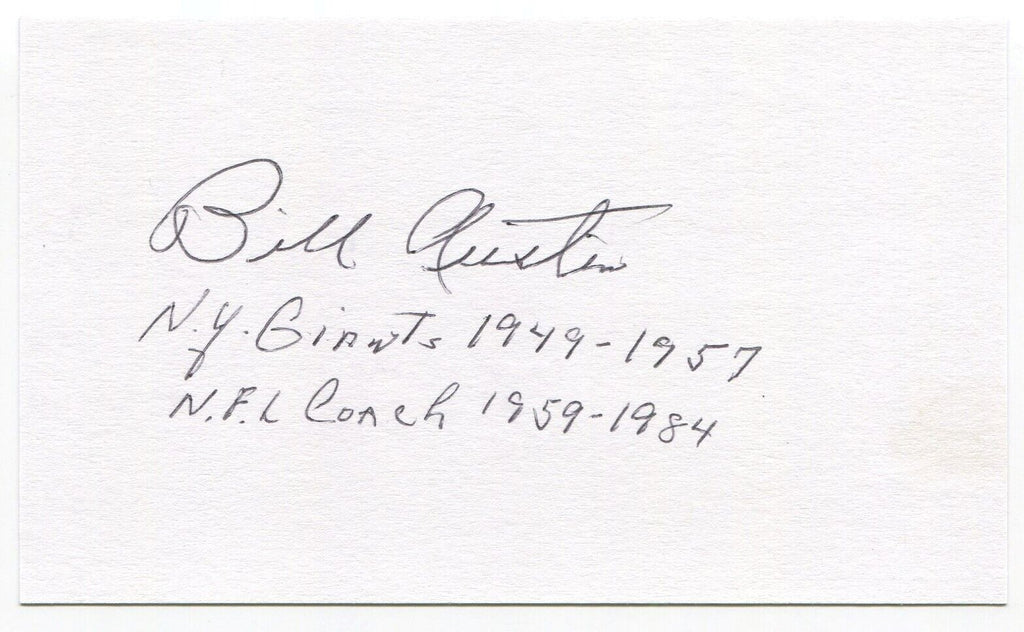 Bill Austin
N.Y. Giants 1949-1957
N.F.L Coach 1959-1984